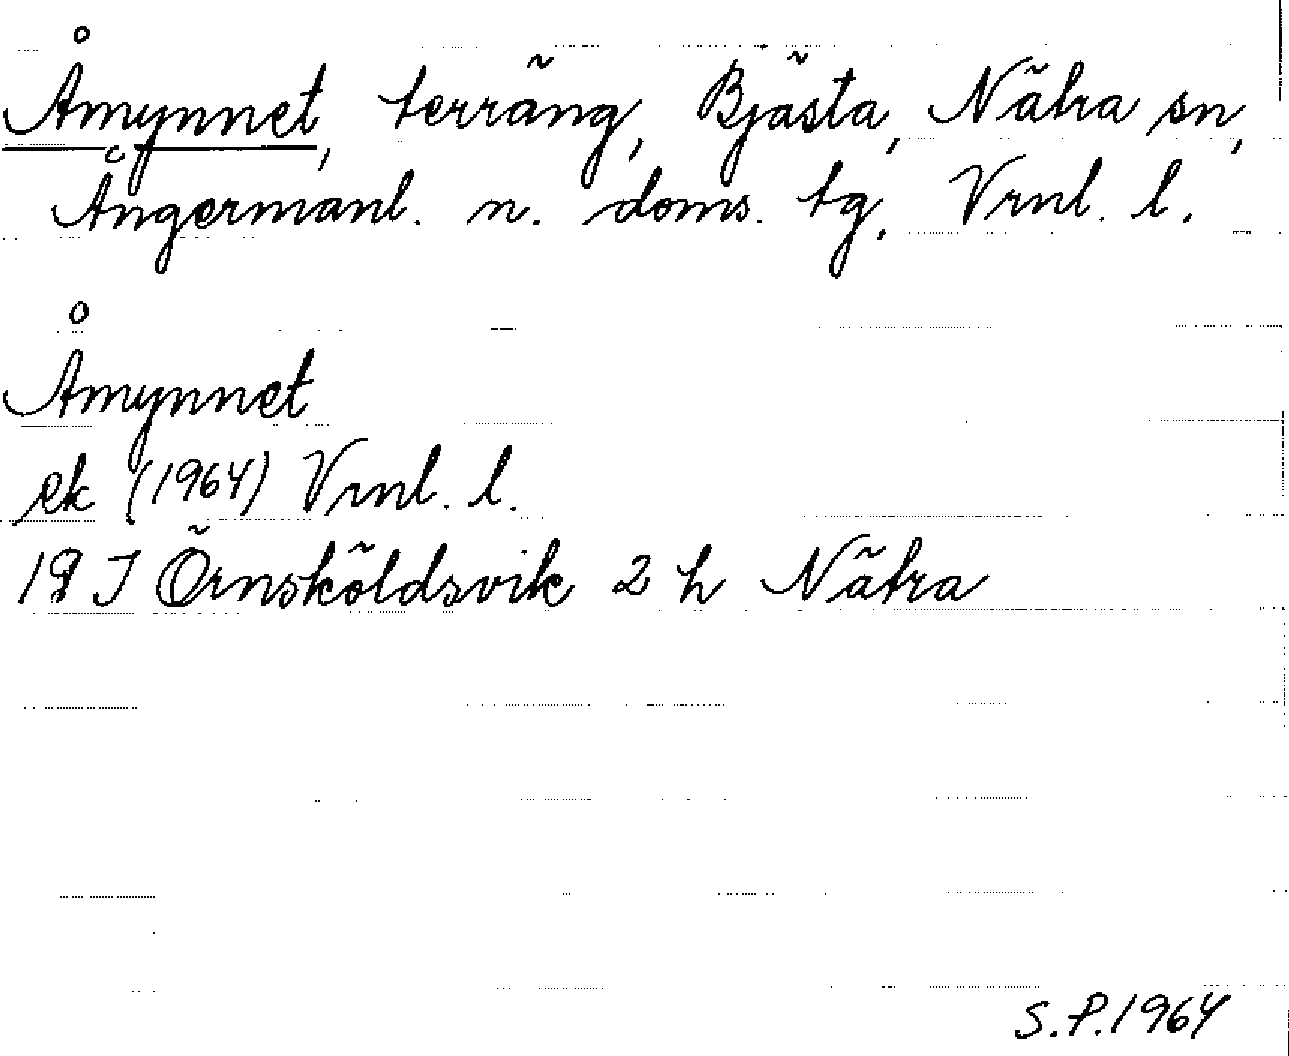 Åmynnet, terräng, Bjästa, Nätra sn,
Ångermanl. n. doms. tg. Vrnl. l.
Åmynnet
ek (1964) Vrnl. l.
19 J Örnsköldsvik 2 h Nätra
S.P.1964